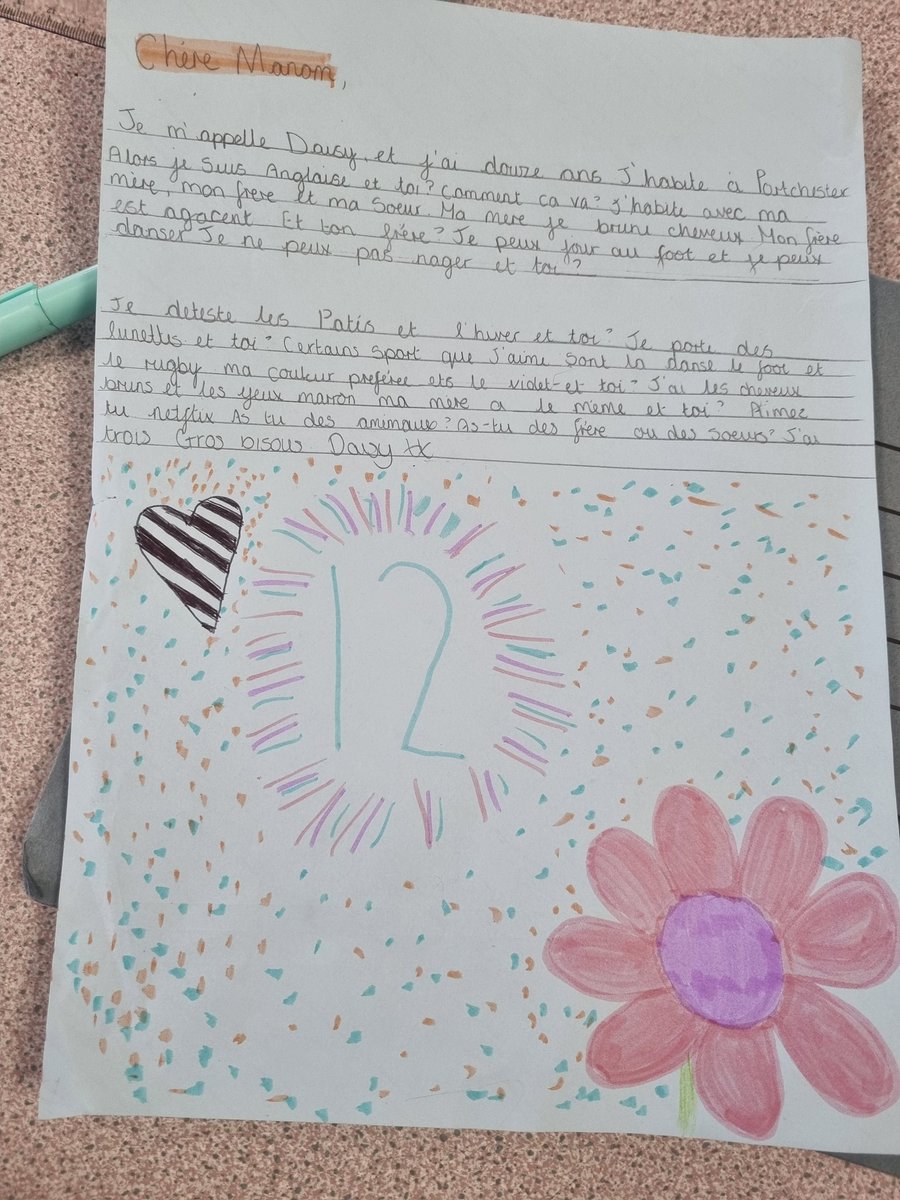 Chère Manon,
Je m'appelle Daisy, et j'ai douze ans J'habite à Portchester
Alors je suis Anglaise et toi? Comment ca va? J'habite avec ma
mère, mon frère et ma soeur. Ma mere je brune cheveux Mon frère
est agacent Et ton frère? Je peux jour au foot et je peux
danser Je ne peux pas nager et toi?
Je deteste les Patis et l'hiver et toi? Je porte des
lunettes et toi? Certains sport que j'aime sont la danse le foot et
le rugby ma couleur preférée ets le violet et toi? J'ai les cheveux
bruns et les yeux marron ma mère a le meme et toi? Aimez
tu netflix As tu des animaux? As-tu des frère ou des soeurs? J'ai
trois Gros bisous Daisy xx
12